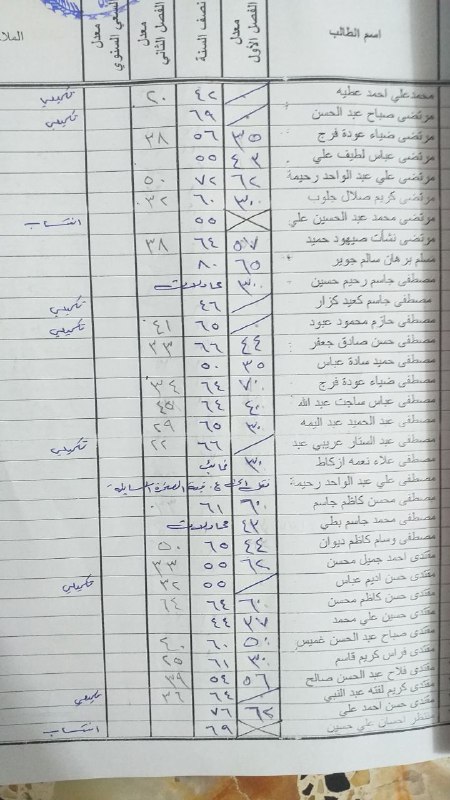 اسم الطالب معدل الفصل الأول نصف السنة معدل الفصل الثاني معدل السعي السنوي
محمد علي احمد عطيه / ٤٢ ٢٠ تكميلي
مرتضى صباح عبد الحسن ٠ ٦٩ تكميلي
مرتضى ضياء عودة فرج ٣٥ ٥٦ ٢٨
مرتضى عباس لطيف علي ٤٣ ٥٥
مرتضى علي عبد الواحد رحيمة ٦٢ ٧٢ ٥٠
مرتضى كريم صلال جلوب ٣٠ ٦٠ ٣٢
مرتضى محمد عبد الحسين علي ٥٥ انتساب
مرتضى نشأت صيهود حميد ٥٧ ٦٤ ٣٨
مسلم برهان سالم جوير ٦٥ ٨٠
مصطفى جاسم رحيم حسين ٣٠
مصطفى جاسم كعيد كزار / ٤٦ تكميلي
مصطفى حازم محمود عبود / ٦٥ ٤١ تكميلي
مصطفى حسن صادق جعفر ٤٤ ٦٦ ٣٣
مصطفى حميد سادة عباس ٣٥ ٥٠
مصطفى ضياء عودة فرج ٧٠ ٦٤ ٣٤
مصطفى عباس ساجت عبد الله ٤٠ ٦٤ ٤٥
مصطفى عبد الحميد عبد اليمه ٣٠ ٦٥ ٢٩
مصطفى عبد الستار عريبي عبد / ٦٦ ٢٢ تكميلي
مصطفى علاء نعمه ازكاط ٣٠ غائب
مصطفى علي عبد الواحد رحيمة
مصطفى محسن كاظم جاسم ٦٠ ٦١
مصطفى محمد جاسم بطي ٤٣
مصطفى وسام كاظم ديوان ٤٤ ٦٥ ٥٠
مقتدى احمد جميل محسن ٦٢ ٥٥ ٣٣
مقتدى حسن اديم عباس / ٥٥ ٣٢ تكميلي
مقتدى حسن كاظم محسن ٦٠ ٦٤ ٦٤
مقتدى حسين علي محمد ٣٧ ٤٤
مقتدى صباح عبد الحسن غميس ٥٠ ٦٠
مقتدى فراس كريم قاسم ٣٠ ٦١ ٢٥
مقتدى فلاح عبد الحسن صالح ٥٦ ٥٤ ٣٩
مقتدى كريم لفته عبد النبي / ٦٤ ٢٦ تكميلي
مقتدى حسن احمد علي ٦٢ ٧٦
منتظر احسان علي حسين ٦٩ انتساب